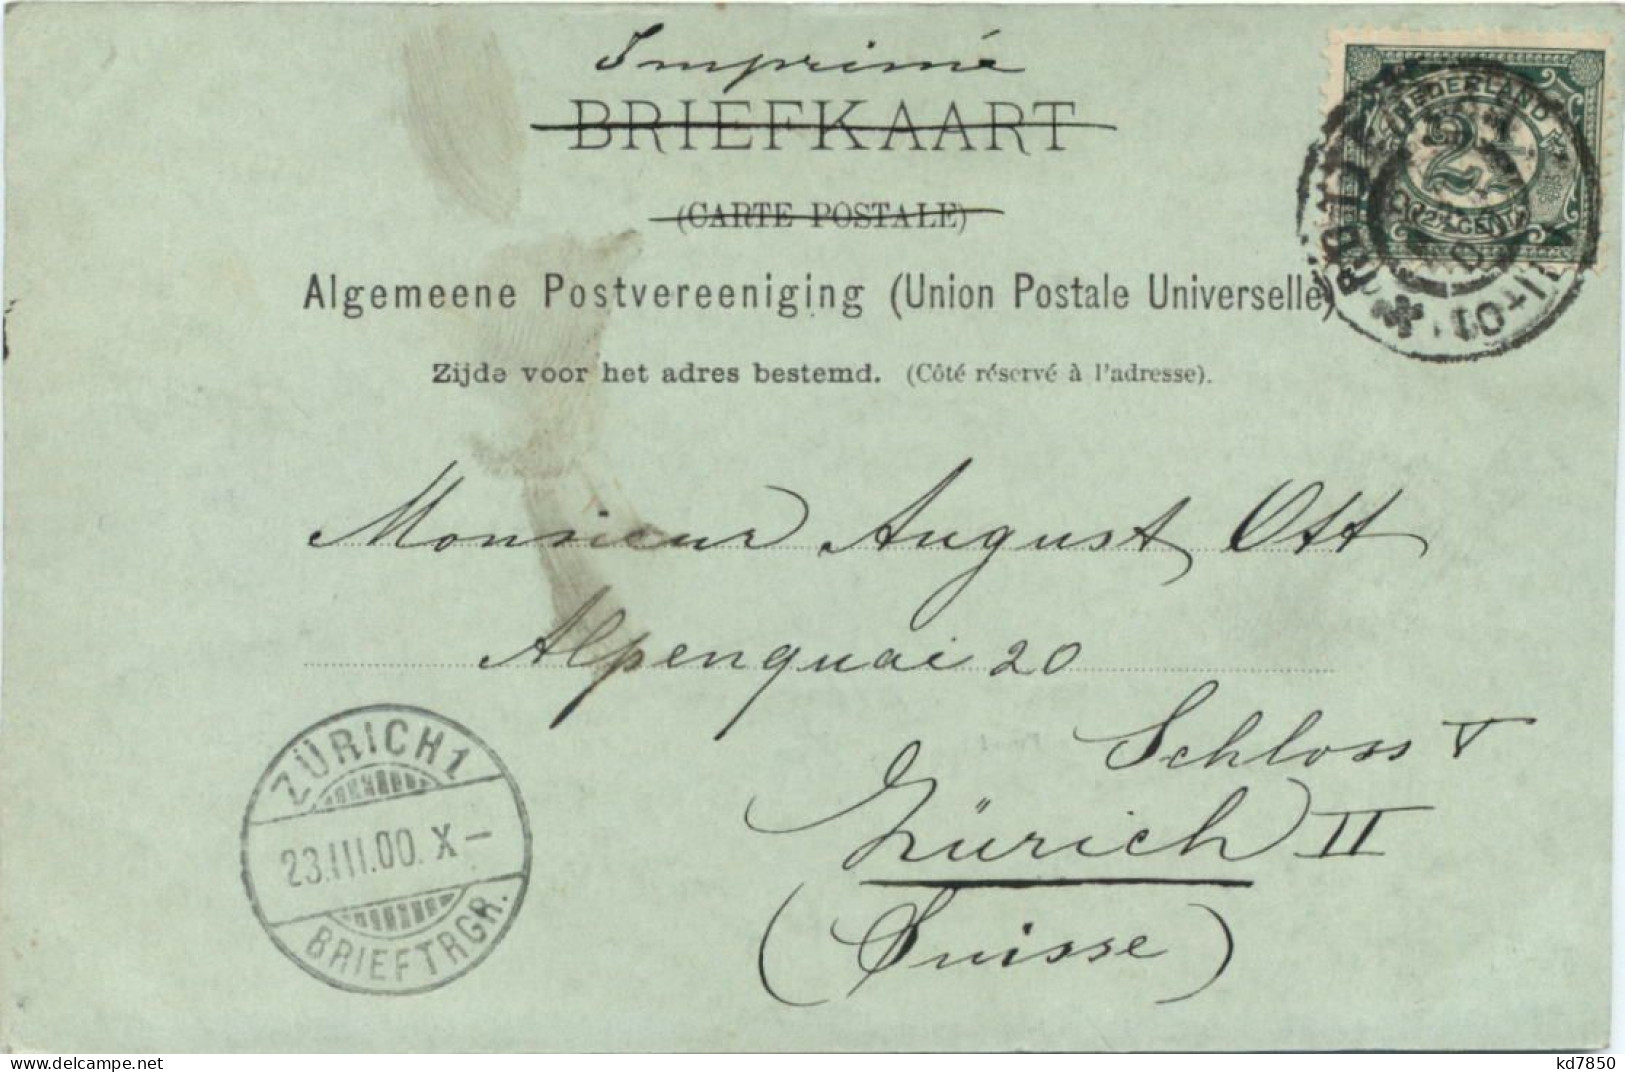 Imprimé
BRIEFKAART
(CARTE POSTALE)
Algemeene Postvereeniging (Union Postale Universelle)
Zijde voor het adres bestemd. (Côté réservé à l'adresse).
NEDERLAND
2½
2½ CENT
Monsieur August Ott
Alpenquai 20
Schloss V
Zürich II
(Suisse)
ZÜRICH 1
23.III.00. X –
BRIEFTRGR.
www.delcampe.net
kd7850